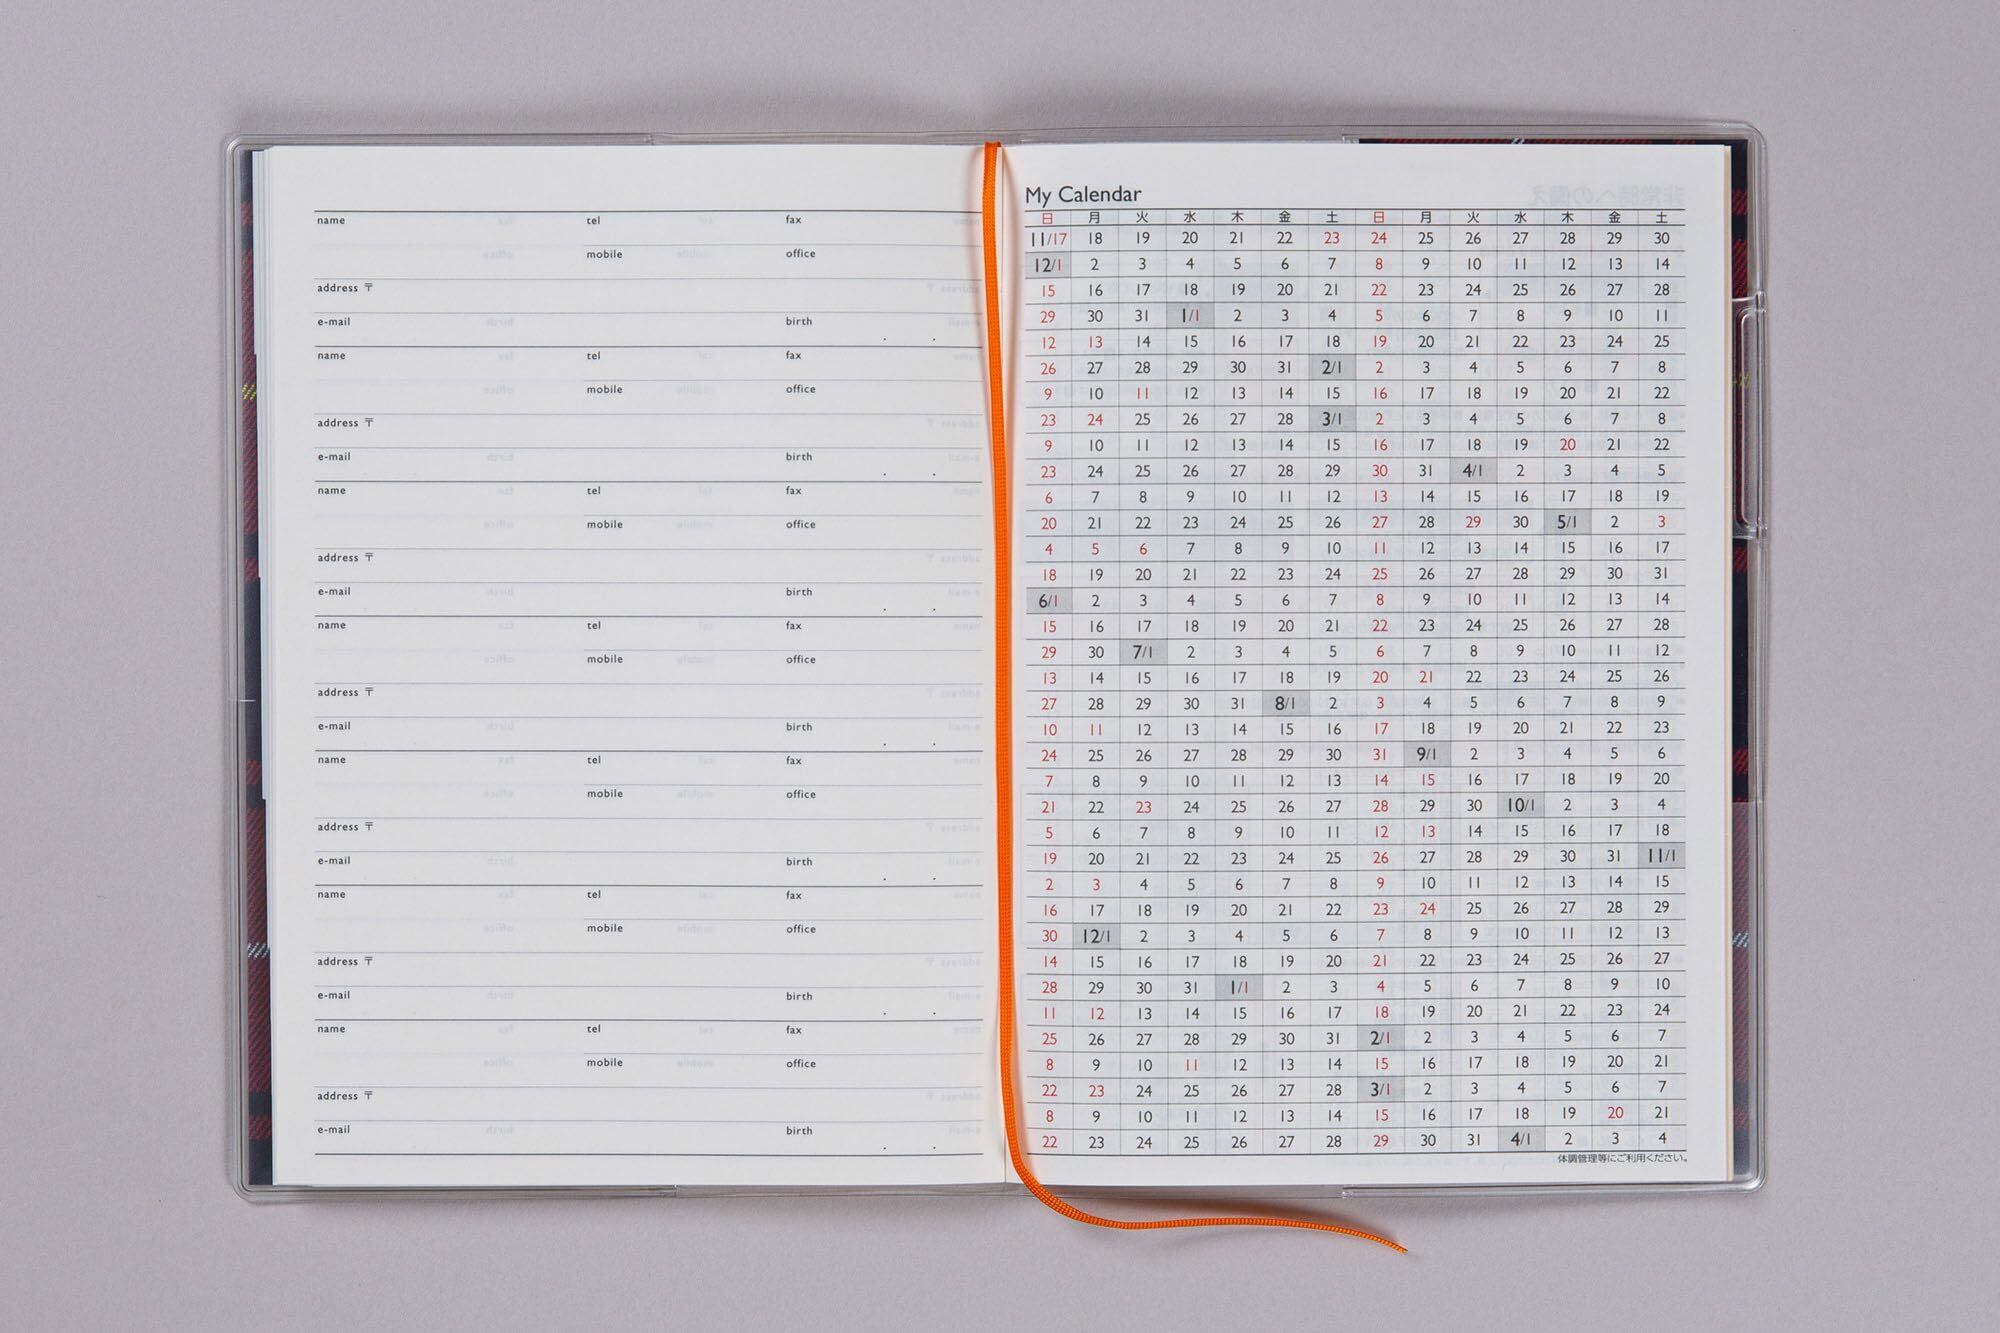 name tel fax
mobile office
address 〒
e-mail birth . .
name tel fax
mobile office
address 〒
e-mail birth . .
name tel fax
mobile office
address 〒
e-mail birth . .
name tel fax
mobile office
address 〒
e-mail birth . .
name tel fax
mobile office
address 〒
e-mail birth . .
name tel fax
mobile office
address 〒
e-mail birth . .
name tel fax
mobile office
address 〒
e-mail birth . .
My Calendar
日 月 火 水 木 金 土 日 月 火 水 木 金 土
11/17 18 19 20 21 22 23 24 25 26 27 28 29 30
12/1 2 3 4 5 6 7 8 9 10 11 12 13 14
15 16 17 18 19 20 21 22 23 24 25 26 27 28
29 30 31 1/1 2 3 4 5 6 7 8 9 10 11
12 13 14 15 16 17 18 19 20 21 22 23 24 25
26 27 28 29 30 31 2/1 2 3 4 5 6 7 8
9 10 11 12 13 14 15 16 17 18 19 20 21 22
23 24 25 26 27 28 3/1 2 3 4 5 6 7 8
9 10 11 12 13 14 15 16 17 18 19 20 21 22
23 24 25 26 27 28 29 30 31 4/1 2 3 4 5
6 7 8 9 10 11 12 13 14 15 16 17 18 19
20 21 22 23 24 25 26 27 28 29 30 5/1 2 3
4 5 6 7 8 9 10 11 12 13 14 15 16 17
18 19 20 21 22 23 24 25 26 27 28 29 30 31
6/1 2 3 4 5 6 7 8 9 10 11 12 13 14
15 16 17 18 19 20 21 22 23 24 25 26 27 28
29 30 7/1 2 3 4 5 6 7 8 9 10 11 12
13 14 15 16 17 18 19 20 21 22 23 24 25 26
27 28 29 30 31 8/1 2 3 4 5 6 7 8 9
10 11 12 13 14 15 16 17 18 19 20 21 22 23
24 25 26 27 28 29 30 31 9/1 2 3 4 5 6
7 8 9 10 11 12 13 14 15 16 17 18 19 20
21 22 23 24 25 26 27 28 29 30 10/1 2 3 4
5 6 7 8 9 10 11 12 13 14 15 16 17 18
19 20 21 22 23 24 25 26 27 28 29 30 31 11/1
2 3 4 5 6 7 8 9 10 11 12 13 14 15
16 17 18 19 20 21 22 23 24 25 26 27 28 29
30 12/1 2 3 4 5 6 7 8 9 10 11 12 13
14 15 16 17 18 19 20 21 22 23 24 25 26 27
28 29 30 31 1/1 2 3 4 5 6 7 8 9 10
11 12 13 14 15 16 17 18 19 20 21 22 23 24
25 26 27 28 29 30 31 2/1 2 3 4 5 6 7
8 9 10 11 12 13 14 15 16 17 18 19 20 21
22 23 24 25 26 27 28 3/1 2 3 4 5 6 7
8 9 10 11 12 13 14 15 16 17 18 19 20 21
22 23 24 25 26 27 28 29 30 31 4/1 2 3 4
体調管理等にご利用ください。